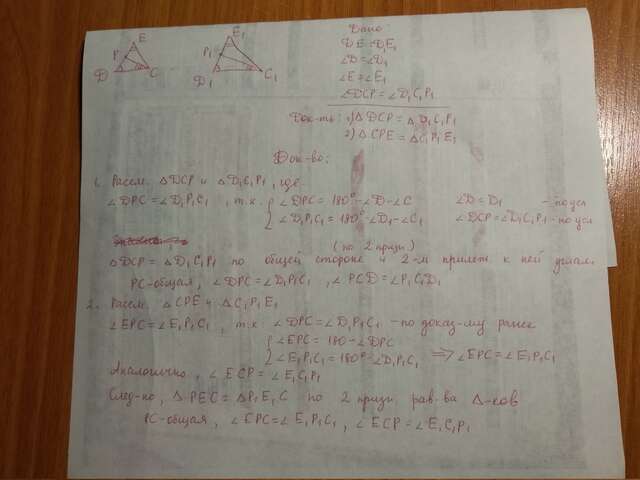 E
P
D
C
E1
P1
D1
C1
Дано:
DE = D1E1
∠D = ∠D1
∠E = ∠E1
∠DCP = ∠D1C1P1
Док-ть: 1) △DCP = △D1C1P1
2) △CPE = △C1P1E1
Док-во:
1. Рассм. △DCP и △D1C1P1, где
∠DPC = ∠D1P1C1, т.к. { ∠DPC = 180° - ∠D - ∠C ∠D = D1 - по усл
∠D1P1C1 = 180° - ∠D1 - ∠C1 ∠DCP = ∠D1C1P1 - по усл
(по 2 призн.)
△DCP = △D1C1P1 по общей стороне и 2-м прилеж. к ней углам.
PC - общая, ∠DPC = ∠D1P1C1, ∠PCD = ∠P1C1D1
2. Рассм. △CPE и △C1P1E1
∠EPC = ∠E1P1C1, т.к. ∠DPC = ∠D1P1C1 - по доказ-му ранее
{ ∠EPC = 180 - ∠DPC
∠E1P1C1 = 180° - ∠D1P1C1 => ∠EPC = ∠E1P1C1
Аналогично, ∠ECP = ∠E1C1P1
След-но, △PEC = △P1E1C по 2 призн. рав-ва △-ков
PC - общая, ∠EPC = ∠E1P1C1, ∠ECP = ∠E1C1P1